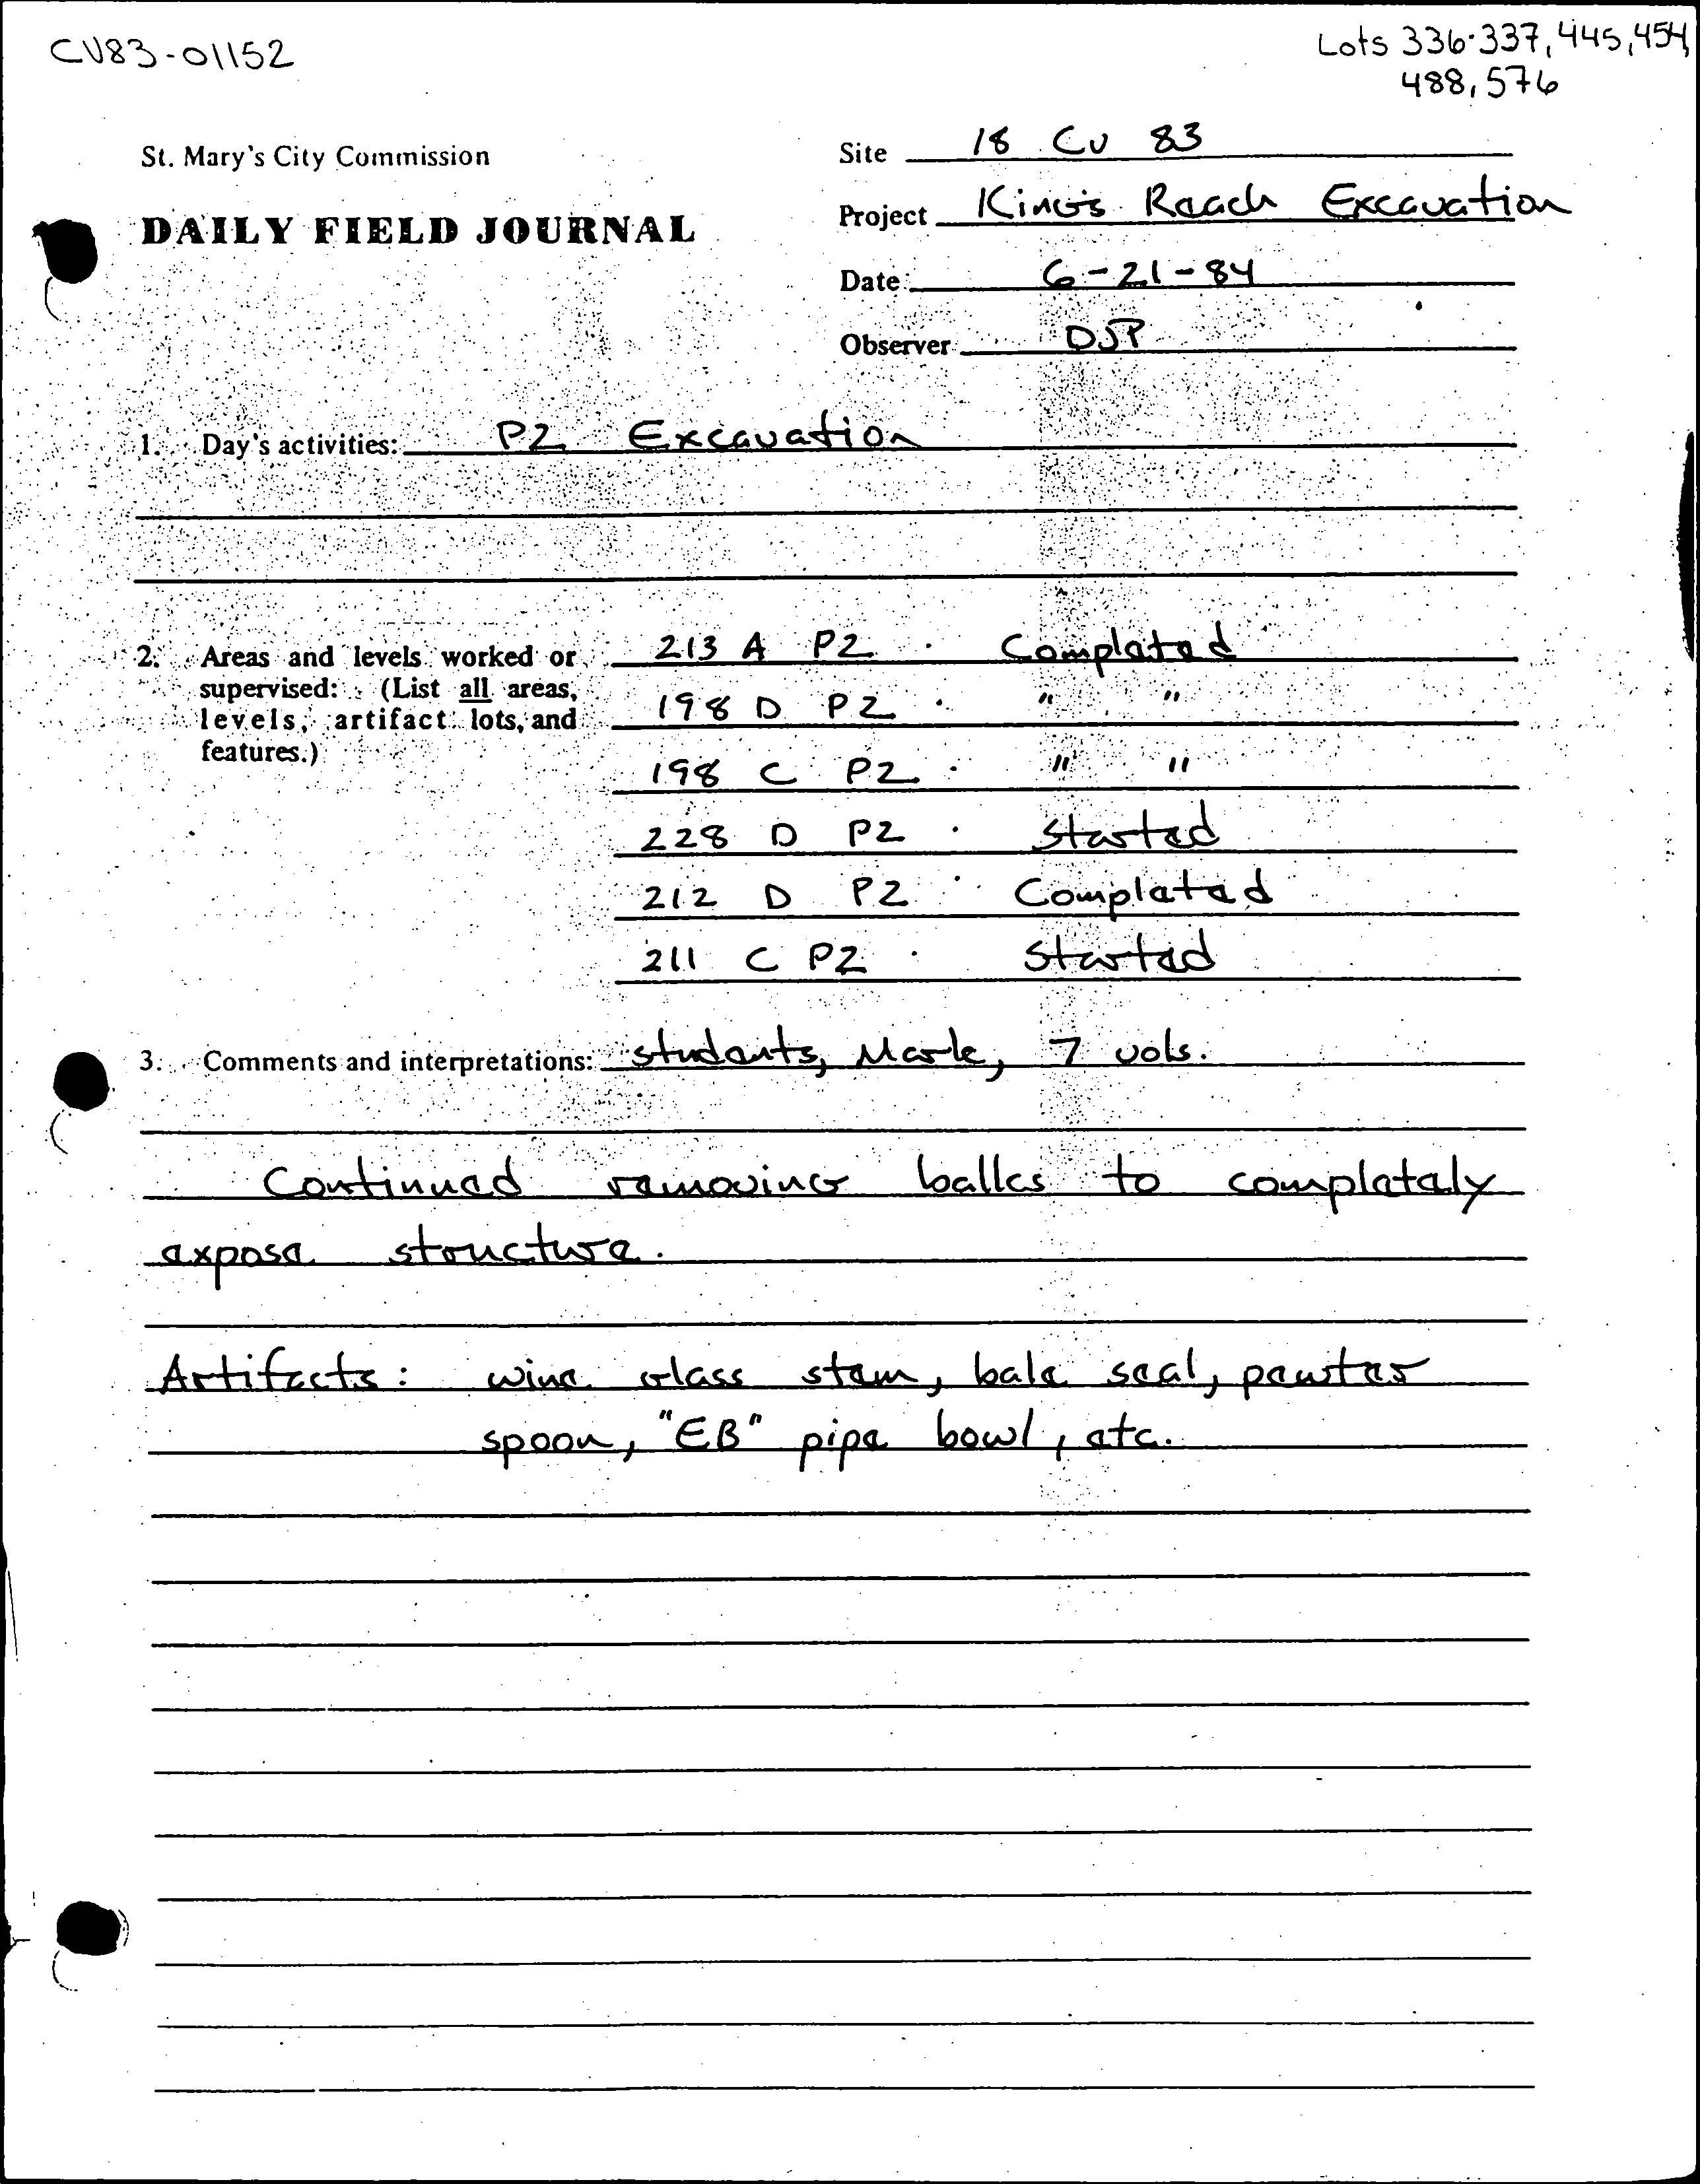 CV83-01152
Lots 336-337, 445, 454,
488, 576
St. Mary's City Commission
Site 18 Cv 83
DAILY FIELD JOURNAL
Project King's Reach Excavation
Date 6-21-84
Observer DJP
1. Day's activities: PZ Excavation
2. Areas and levels worked or supervised: (List all areas, levels, artifact lots, and features.)
213 A PZ . Completed
198 D PZ . " "
198 C PZ . " "
228 D PZ . Started
212 D PZ . Completed
211 C PZ . Started
3. Comments and interpretations: students, Mark, 7 vols.
Continued removing balks to completely
expose structure.
Artifacts: wine glass stem, bale seal, pewter
spoon, "EB" pipe bowl, etc.